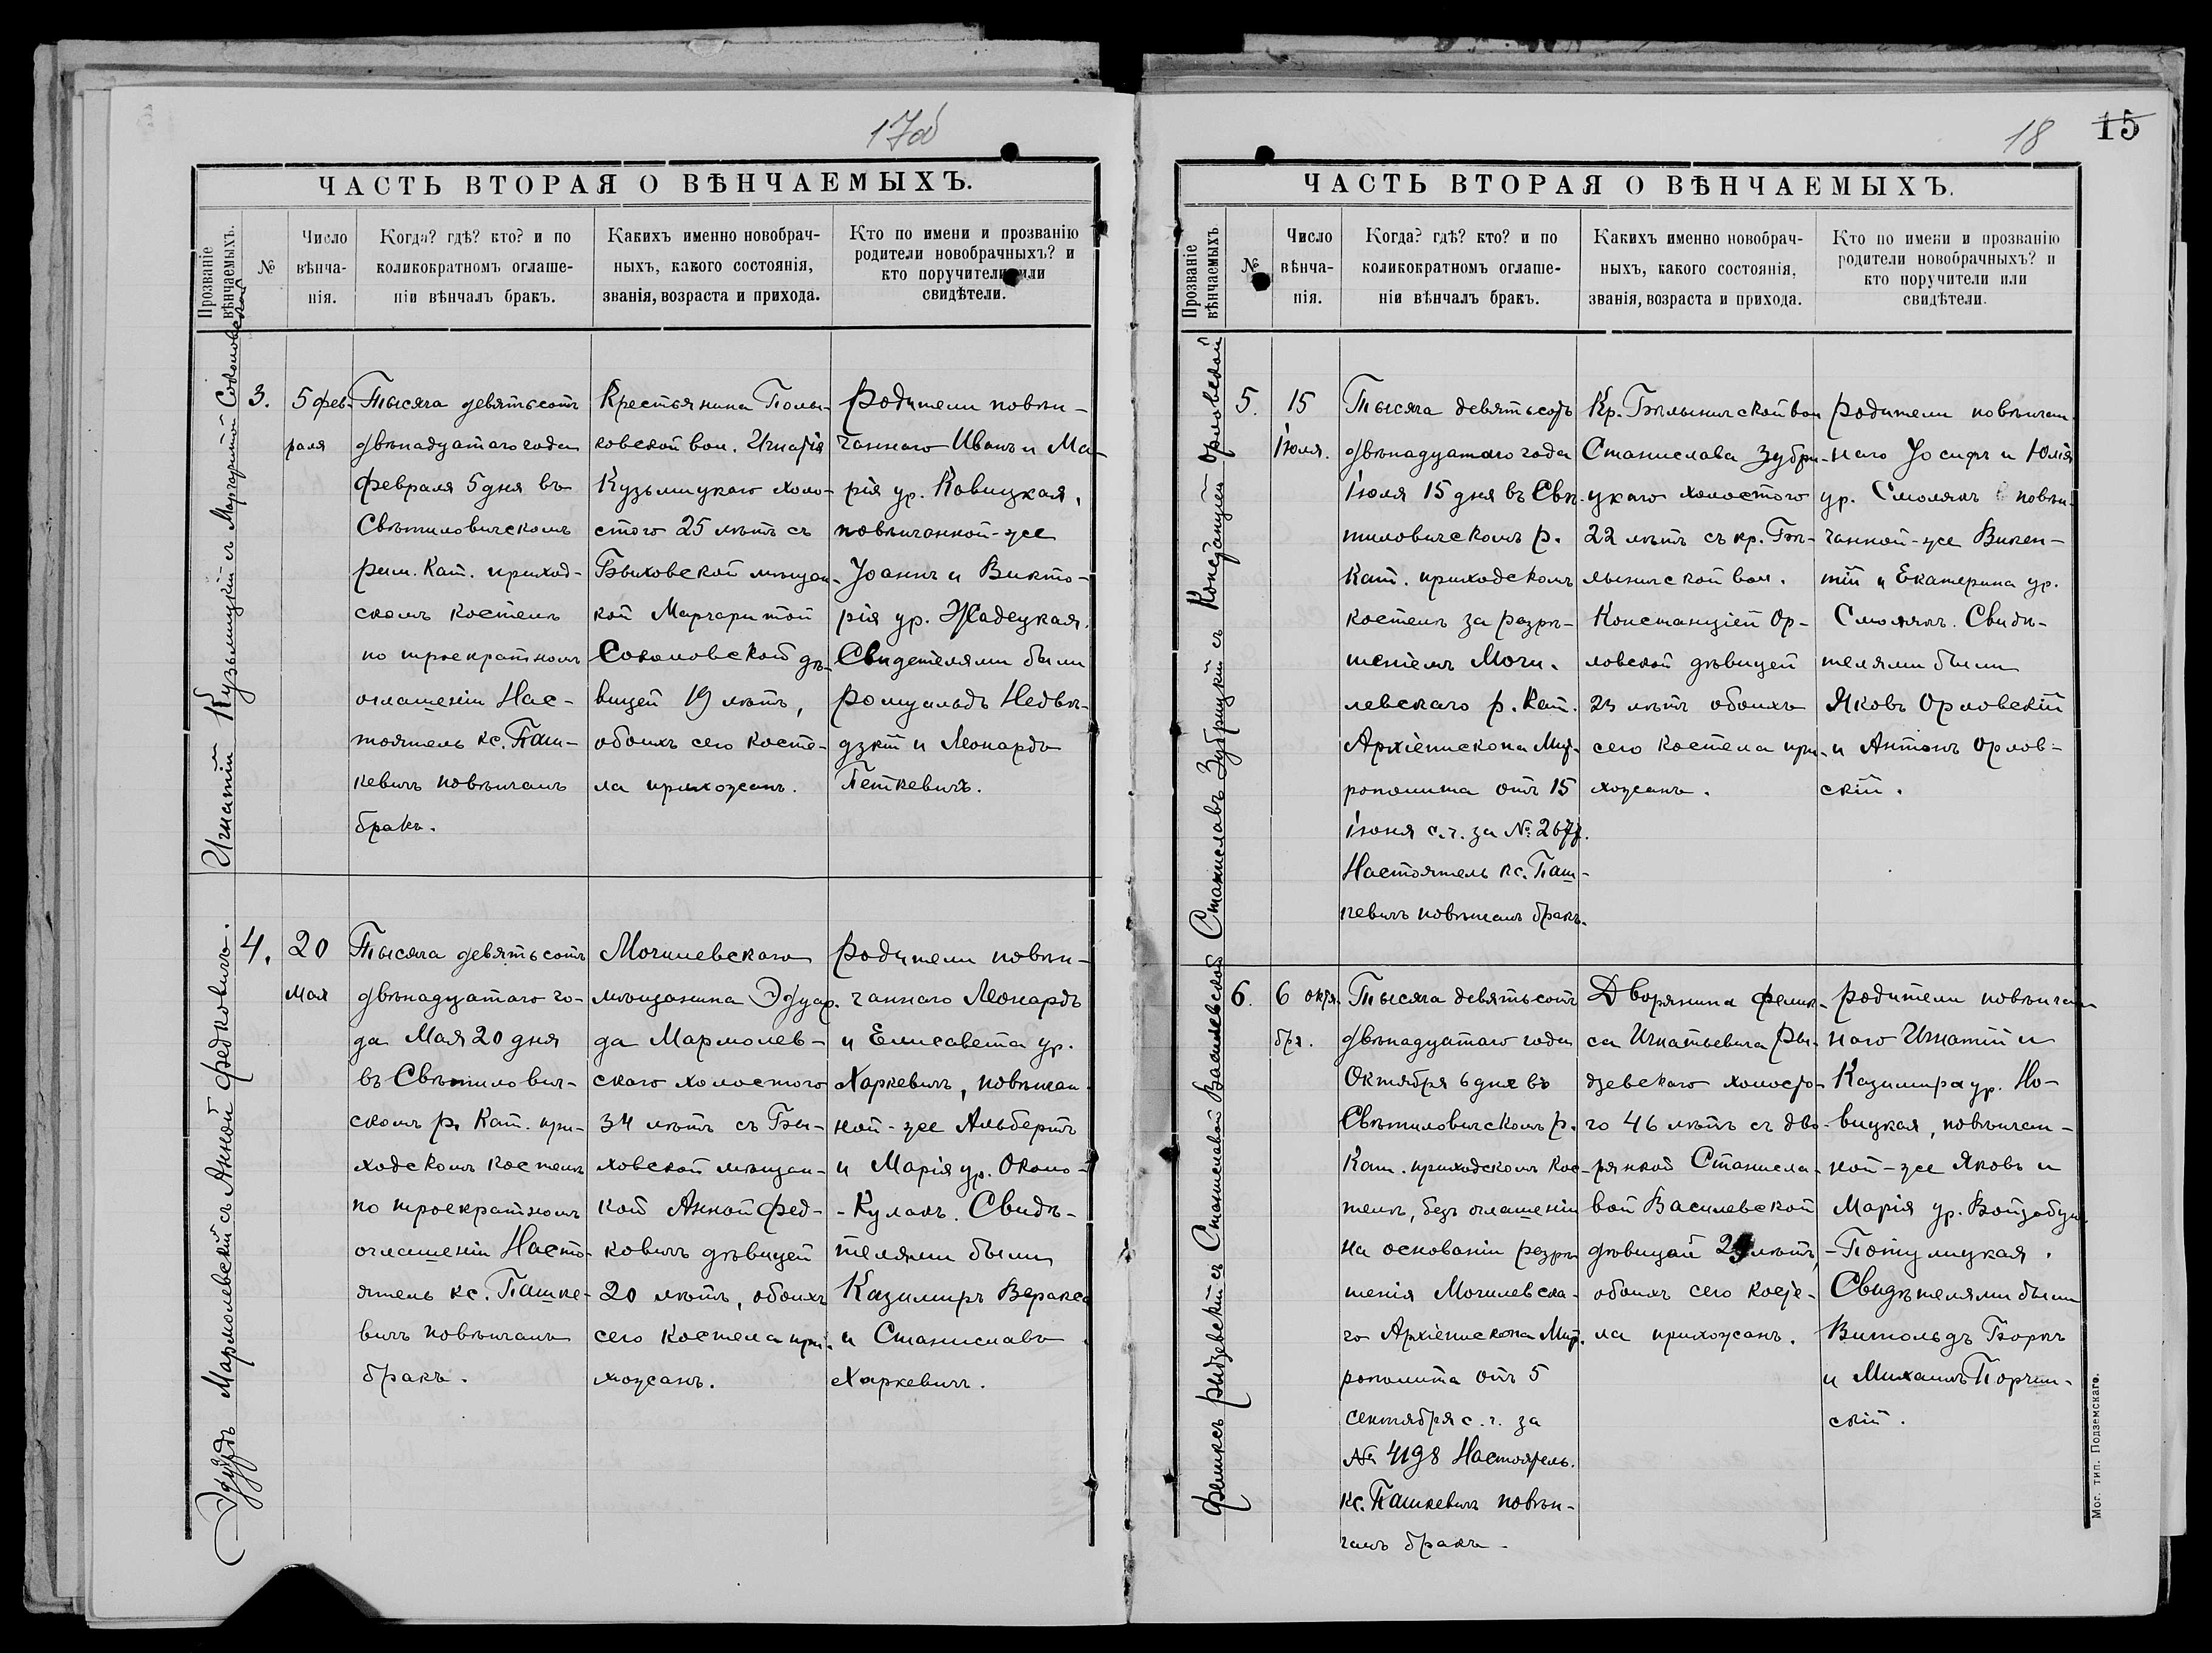 17об
ЧАСТЬ ВТОРАЯ О ВѢНЧАЕМЫХЪ.
Прозваніе вѣнчаемыхъ.
№
Число
вѣнча-
нія.
Когда? гдѣ? кто? и по
коликократномъ оглаше-
ніи вѣнчалъ бракъ.
Какихъ именно новобрач-
ныхъ, какого состоянія,
званія, возраста и прихода.
Кто по имени и прозванію
родители новобрачныхъ? и
кто поручители или
свидѣтели.
Игнатій Кузьмицкій съ Маргаритой Соколовской
3.
5 фев-
раля
Тысяча девятьсотъ
двѣнадцатаго года
февраля 5 дня въ
Свѣтиловическомъ
рим. Кат. приход-
скомъ костелѣ
по троекратномъ
оглашеніи Нас-
тоятель кс. Паш-
кевичъ повѣнчалъ
бракъ.
Крестьянина Полы-
ковской вол. Игнатія
Кузьмицкаго холо-
стого 25 лѣтъ съ
Быховской мѣщан-
кой Маргаритой
Соколовской дѣ-
вицей 19 лѣтъ,
обоихъ сего косте-
ла прихожанъ.
Родители повѣн-
чаннаго Иванъ и Ма-
рія ур. Ковицкая,
повѣнчанной-же
Іоаннъ и Викто-
рія ур. Жадецкая.
Свидетелями были
Ромуальдъ Недвѣ-
дзкій и Леонардъ
Петкевичъ.
Эдуардъ Мармолевскій съ Анной Федковичъ.
4.
20
Мая
Тысяча девятьсотъ
двѣнадцатаго го-
да Мая 20 дня
въ Свѣтилович-
скомъ р. Кат. при-
ходскомъ костелѣ
по троекратномъ
оглашеніи Насто-
ятель кс. Пашке-
вичъ повѣнчалъ
бракъ.
Могилевскаго
мѣщанина Эдуар-
да Мармолев-
скаго холостого
34 лѣтъ съ Бы-
ховской мѣщан-
кой Анной Фед-
ковичъ дѣвицей
20 лѣтъ, обоихъ
сего костела при-
хожанъ.
Родители повѣн-
чаннаго Леонардъ
и Елисавета ур.
Харкевичъ, повѣнчан-
ной-же Альбертъ
и Марія ур. Около-
-Кулакъ. Свидѣ-
телями были
Казимиръ Веракса
и Станиславъ
Харкевичъ.
18
15
ЧАСТЬ ВТОРАЯ О ВѢНЧАЕМЫХЪ.
Прозваніе вѣнчаемыхъ
№
Число
вѣнча-
нія.
Когда? гдѣ? кто? и по
коликократномъ оглаше-
ніи вѣнчалъ бракъ.
Какихъ именно новобрач-
ныхъ, какого состоянія,
званія, возраста и прихода.
Кто по имени и прозванію
родители новобрачныхъ? и
кто поручители или
свидѣтели.
Станиславъ Зубрицкій съ Констанціей Орловской
5.
15
Іюля.
Тысяча девятьсотъ
двѣнадцатаго года
Іюля 15 дня въ Свѣ-
тиловическомъ р.
Кат. приходскомъ
костелѣ за разрѣ-
шеніемъ Моги-
левскаго р. Кат.
Архіепископа Мит-
рополита отъ 15
Іюня с.г. за № 2677.
Настоятель кс. Паш-
кевичъ повѣнчалъ бракъ.
Кр. Бѣлыничской вол
Станислава Зубри-
цкаго холостого
22 лѣтъ съ кр. Бѣ-
лыничской вол.
Констанціей Ор-
ловской дѣвицей
23 лѣтъ обоихъ
сего костела при-
хожанъ.
Родители повѣнчан-
наго Іосифъ и Юлія
ур. Смолякъ повѣн-
чанной-же Викен-
тій и Екатерина ур.
Смолякъ. Свидѣ-
телями были
Яковъ Орловскій
и Антонъ Орлов-
скій.
Феликсъ Рыдзевскій съ Станиславой Василевской
6.
6 октя-
бря.
Тысяча девятьсотъ
двѣнадцатаго года
Октября 6 дня въ
Свѣтиловическомъ р.
Кат. приходскомъ кос-
телѣ, безъ оглашенія
на основаніи разрѣ
шенія Могилевска-
го Архіепископа Мит-
рополита отъ 5
сентября с.г. за
№ 4198 Настоятель.
кс. Пашкевичъ повѣн-
чалъ бракъ.
Дворянина Фелик-
са Игнатьевича Ры-
дзевскаго холосто-
го 46 лѣтъ съ дво-
рянкой Станисла-
вой Василевской
дѣвицей лѣтъ,
обоихъ сего косте-
ла прихожанъ.
Родители повѣнчан
наго Игнатій и
Казимира ур. Но-
вицкая, повѣнчан-
ной-же Яковъ и
Марія ур. Войзбун
-Потулицкая.
Свидѣтелями были
Витольдъ Боркъ
и Михаилъ Порчин-
скій.
Мог. тип. Подземскаго.